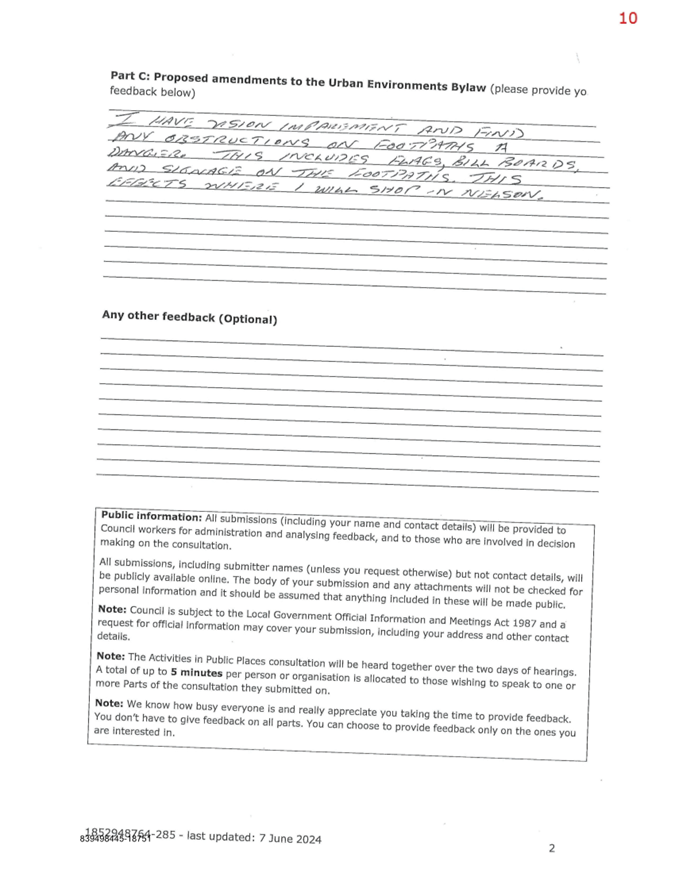 10
Part C: Proposed amendments to the Urban Environments Bylaw (please provide yo
feedback below)
I HAVE VISION IMPAREMENT AND FIND
ANY OBSTRUCTIONS ON FOOTPATHS A
DANGER. THIS INCLUDES FLAGS, BILL BOARDS,
AND SIGNAGE ON THE FOOTPATHS. THIS
EFFECTS WHERE I WILL SHOP IN NELSON.
Any other feedback (Optional)
Public information: All submissions (including your name and contact details) will be provided to
Council workers for administration and analysing feedback, and to those who are involved in decision
making on the consultation.
All submissions, including submitter names (unless you request otherwise) but not contact details, will
be publicly available online. The body of your submission and any attachments will not be checked for
personal information and it should be assumed that anything included in these will be made public.
Note: Council is subject to the Local Government Official Information and Meetings Act 1987 and a
request for official information may cover your submission, including your address and other contact
details.
Note: The Activities in Public Places consultation will be heard together over the two days of hearings.
A total of up to 5 minutes per person or organisation is allocated to those wishing to speak to one or
more Parts of the consultation they submitted on.
Note: We know how busy everyone is and really appreciate you taking the time to provide feedback.
You don't have to give feedback on all parts. You can choose to provide feedback only on the ones you
are interested in.
1852948764-285 - last updated: 7 June 2024
839498445-18751
2